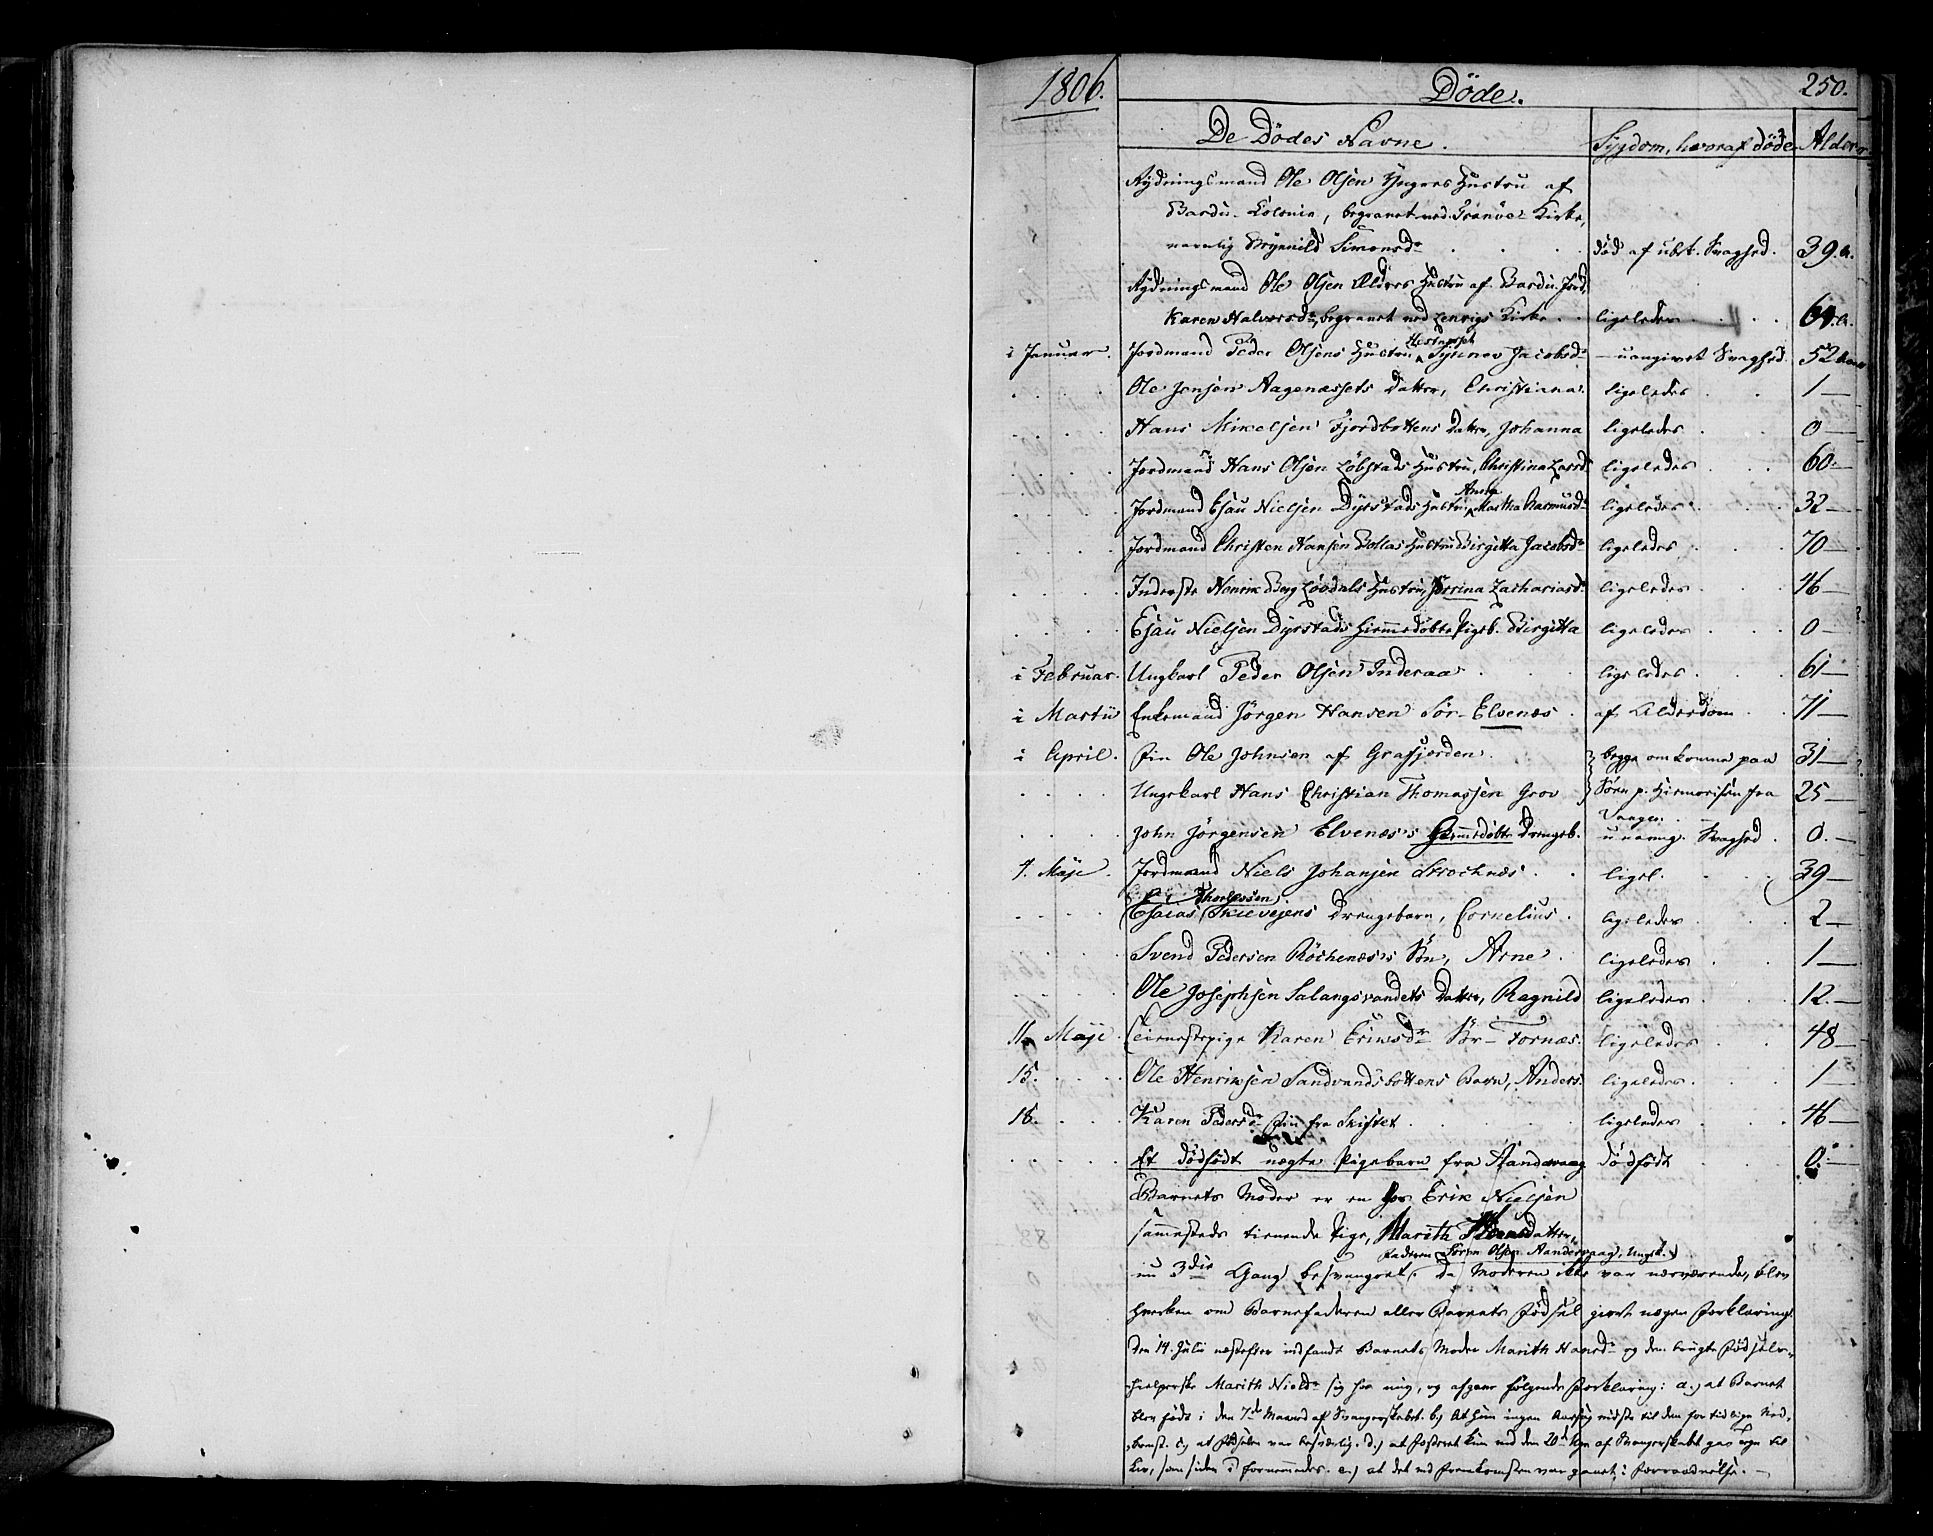 1806. Døde. 250.
De Dødes Navne. Sygdom, hvoraf døde Alder
Rydningsmand Ole Olsen Yngres Hustru af
Bardu-Colonie, begravet ved Tranöe Kirke,
navnlig Brynnild Simonsdr død af ubek. Svaghed. 39 a.
Rydningsmand Ole Olsen Ældres Hustru af Bardu. Ibid.
Karen Halvorsdr, begravet ved Lenvigs Kirke ligeledes 64 a.
i Januar. Jordmand Peder Olsens Hustru Synnev Jacobsdr – uangivet Svaghed 52
Ole Jensen Aagenæssets Datter, Christiana ligeledes 1 –
Hans Mikelsen Fjordbottens Datter, Johanna ligeledes 0 –
Jordmand Hans Olsen Löbstads Hustru, Christina Larsdr ligeledes 60 –
Anna
Jordmand Esau Nielsen Dyrstads Hustru Martha Rasmusdr ligeledes 32 –
Jordmand Christen Hansen Bollas Hustru Birgitta Jacobsdr ligeledes 70 –
Inderste Henrik Berg Løvdals Hustru, Zachariasdr ligeledes 46 –
Esau Nielsen Dyrstads hiemmedøbte Pigeb. Birgitta ligeledes 0 –
i Februar. Ungkarl Peder Olsen Inderaa ligeledes 61 –
i Martii Enkemand Jörgen Hansen Sør-Elvenæs af Alderdom 71 –
i April. Fin Ole Johnsen af Grafjorden begge omkomne paa 31 –
Ungekarl Hans Christian Thomassen Grov Søen p. Hiemreisen fra 25 –
Vaagen.
John Jörgensen Elvenæs's hiemmedøbte Drengeb. unavng. Svaghed 0 –
4. Maje. Jordmand Niels Johansen Skrochnæs ligel. 39 –
Thorlessen
Esaias Skievejens Drengebarn, Cornelius ligeledes 2 –
Svend Pedersen Röchenæs's Søn, Arne ligeledes 1 –
Ole Josephsen Salangsvandets Datter, Ragnild ligeledes 12 –
11. Maje Tienestepige Karen Eriksdr Sör-Fornæs ligeledes 48 –
15. Ole Henriksen Sandvandsbottens Barn, Anders ligeledes 1 –
18. Karen Pedersdr Fin fra Skistet ligeledes 46 –
Et dødfødt uægte Pigebarn fra Aandervaag Dødfødt 0 –
Barnets Moder er en hos Erik Nielsen
sammesteds tienende Pige, Marith Hansdatter,
Faderen Sören Olsen Aandervaag, Ungk.
nu 3die Gang besvangret. Da Moderen ikke var nærværende, blev
hverken om Barnefaderen eller Barnets Fødsel giort nogen Forklaring.
Den 14. Juli næstefter indfandt Barnets Moder Marith Hansdr og den brugte Fødsels-
hielperske Marith Nielsdr sig for mig, og afgave følgende Forklaring: a.) at Barnet
blev født i den 7de Maaned af Svangerskabet. b.) At hun ingen Aarsag vidste til den for tidlige Ned-
komst. c.) at Fødselen var besværlig. d.) at Fosteret kun ved den 20de Uge af Svangerskabet gav Tegn til
Liv, som siden ei fornemmedes. e.) at det ved Fremkomsten var gaaet i Forraadnelse. –